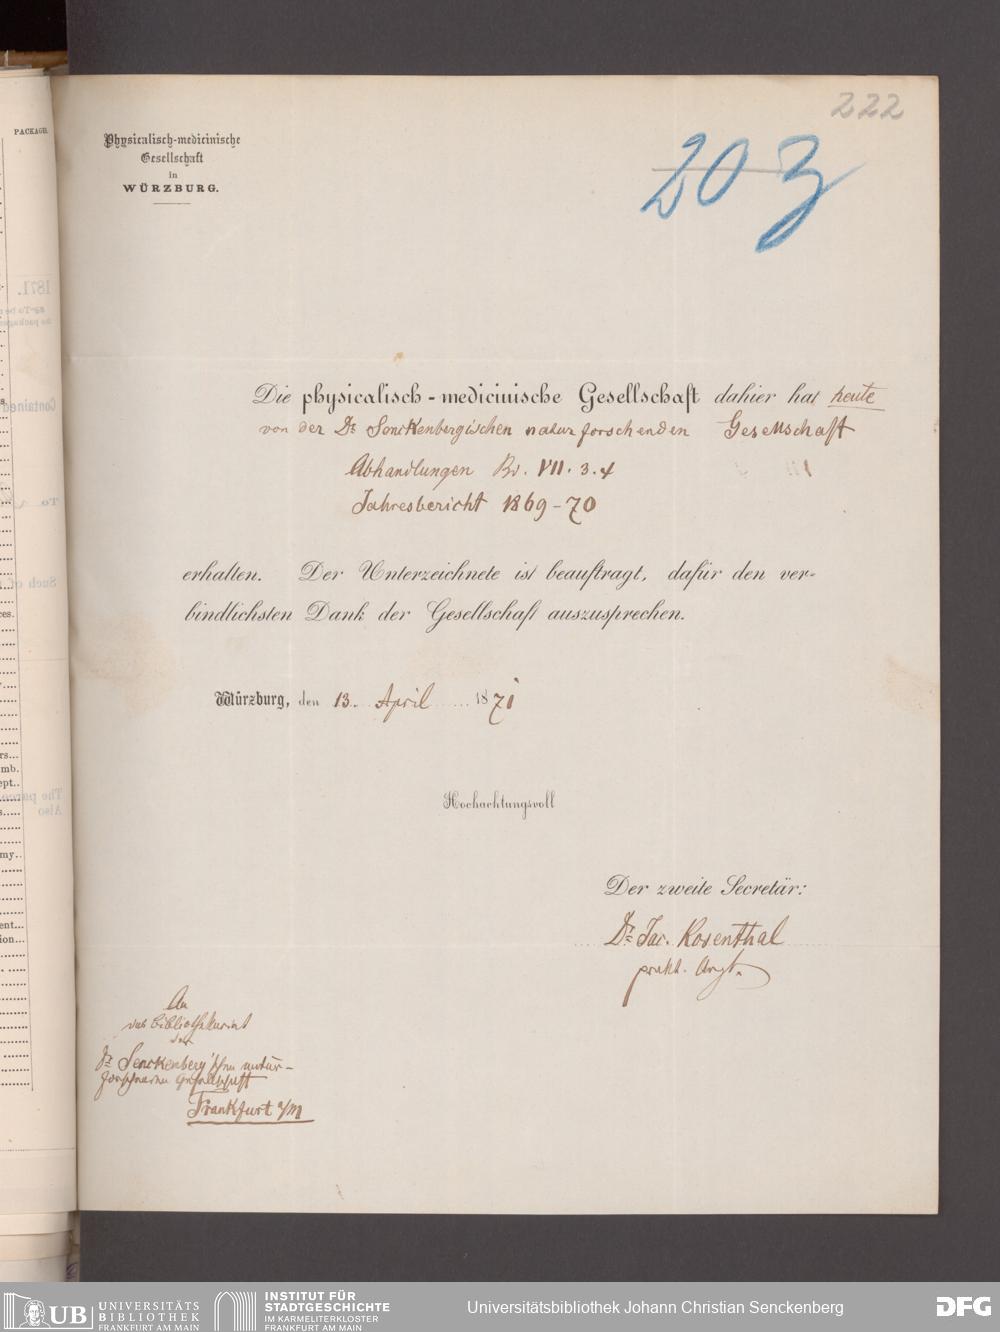 222
203
Physicalisch-medicinische
Gesellschaft
in
WÜRZBURG.
Die physicalisch-medicinische Gesellschaft dahier hat heute
von der Dr Senckenbergischen naturforschenden Gesellschaft
Abhandlungen Bd. VII. 3. 4
Jahresbericht 1869-70
erhalten. Der Unterzeichnete ist beauftragt, dafür den ver-
bindlichsten Dank der Gesellschaft auszusprechen.
Würzburg, den 13. April 1871
Hochachtungsvoll
Der zweite Secretär:
Dr Jac. Rosenthal
prakt. Arzt.
An
das Bibliothekariat
der
Dr Senckenberg'schen natur-
forschenden Gesellschaft
Frankfurt a/M
PACKAGE.
1871.
Contained
To
Such of
ces.
rs...
mb.
ept..
The parcel
Also
my..
ent...
ion...
UB UNIVERSITÄTS
BIBLIOTHEK
FRANKFURT AM MAIN
INSTITUT FÜR
STADTGESCHICHTE
IM KARMELITERKLOSTER
FRANKFURT AM MAIN
Universitätsbibliothek Johann Christian Senckenberg
DFG